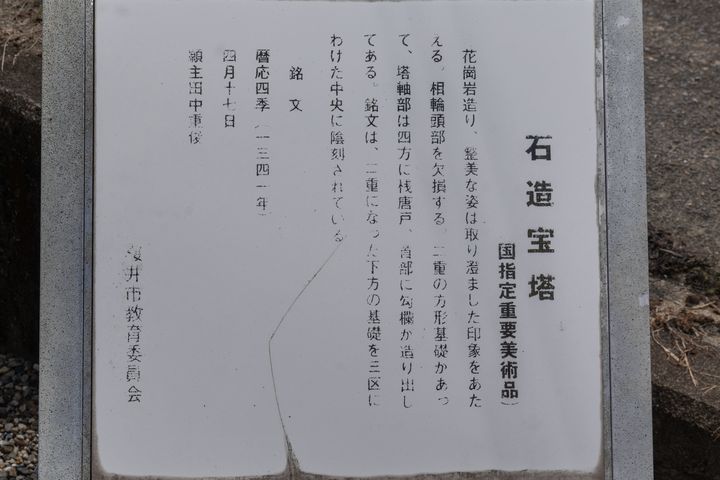 石造宝塔
国指定重要美術品)
花崗岩造り、整美な姿は取り澄ました印象をあた
える。相輪頭部を欠損する。二重の方形基礎があっ
て、塔軸部は四方に桟唐戸、首部に勾欄が造り出し
てある。銘文は、二重になった下方の基礎を三区に
わけた中央に陰刻されている
銘文
暦応四季(一三四一年)
四月十七日
願主田中重俊
桜井市教育委員会